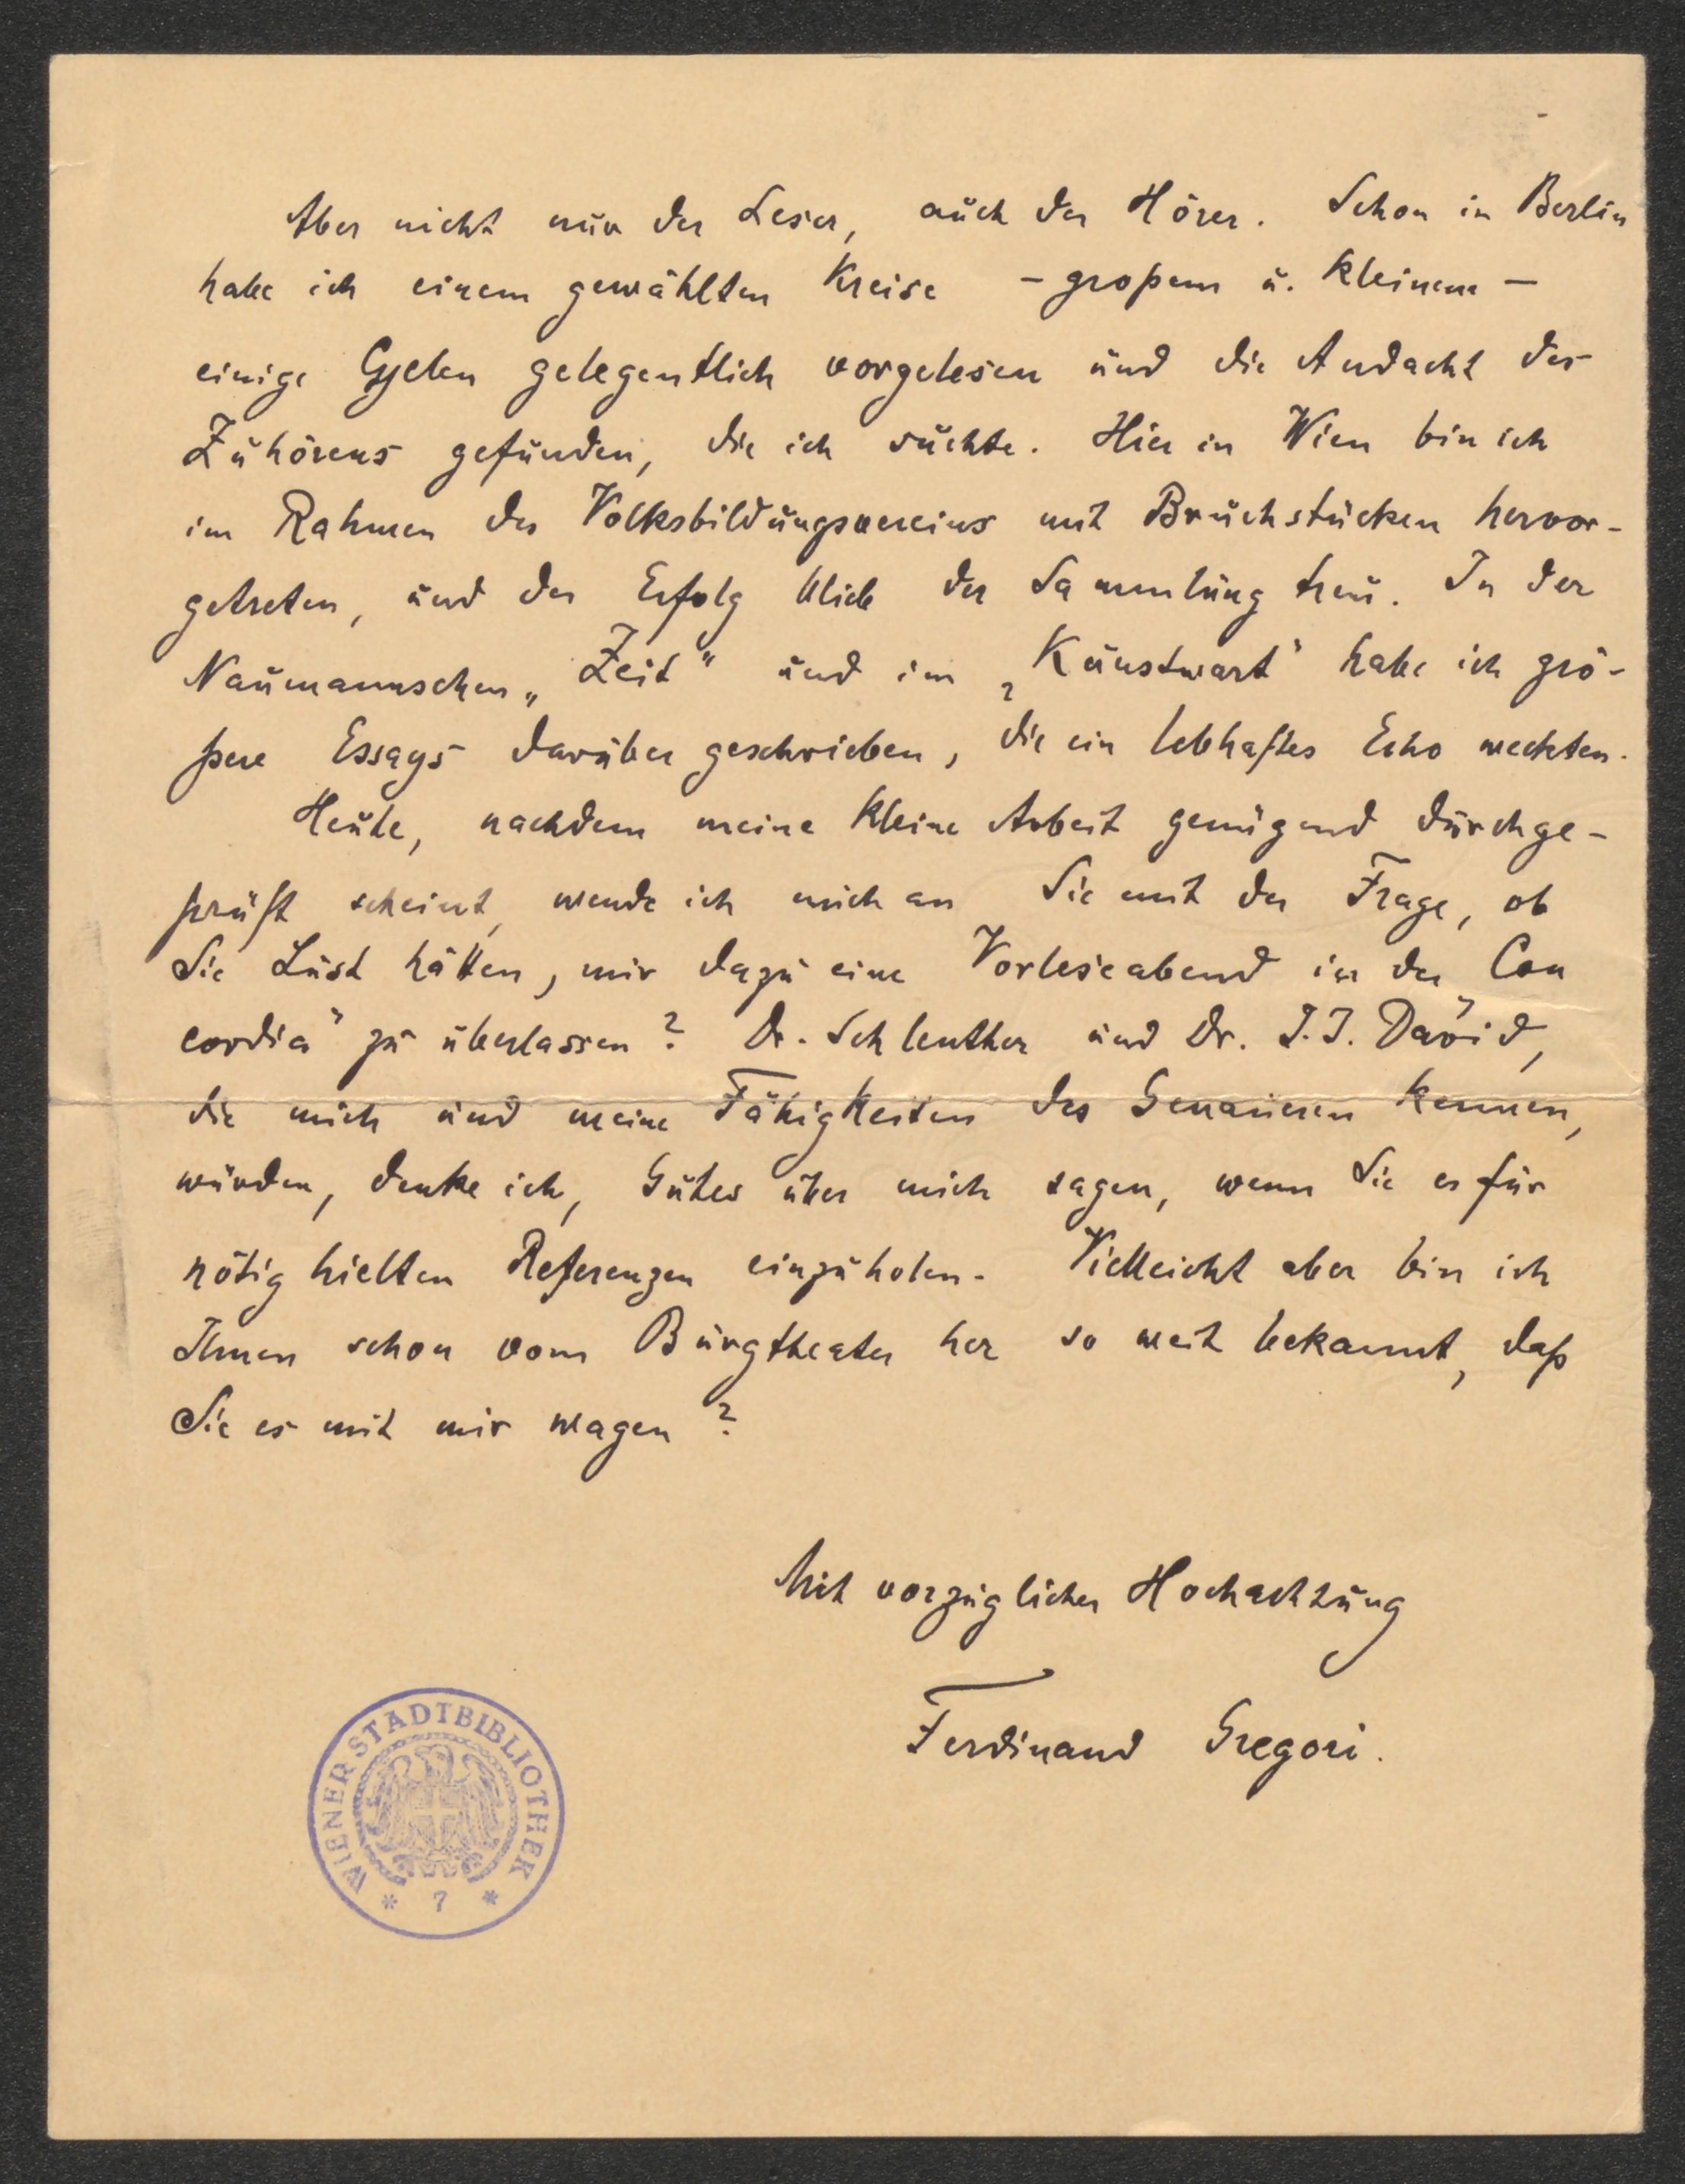 Aber nicht nur der Leser, auch der Hörer. Schon in Berlin
habe ich einem gewählten Kreise – großem u. kleinem –
einige Cyclen gelegentlich vorgelesen und die Andacht des
Zuhörens gefunden, die ich suchte. Hier in Wien bin ich
im Rahmen des Volksbildungsvereins mit Bruchstücken hervor-
getreten, und der Erfolg blieb der Sammlung treu. In der
Naumannschen „Zeit“ und im „Kunstwart“ habe ich grö-
ßere Essays darüber geschrieben, die ein lebhaftes Echo weckten.
Heute, nachdem meine kleine Arbeit genügend durchge-
prüft scheint, wende ich mich an Sie mit der Frage, ob
Sie Lust hätten, mir dazu eine Vorleseabend in der „Con
cordia“ zu überlassen? Dr. Schlenther und Dr. J. J. David,
die mich und meine Fähigkeiten des Genaueren kennen,
würden, denke ich, Gutes über mich sagen, wenn Sie es für
nötig hielten Referenzen einzuholen. Vielleicht aber bin ich
Ihnen schon vom Burgtheater her so weit bekannt, daß
Sie es mit mir wagen?
Mit vorzüglicher Hochachtung
Ferdinand Gregori.
WIENER STADTBIBLIOTHEK
* 7 *